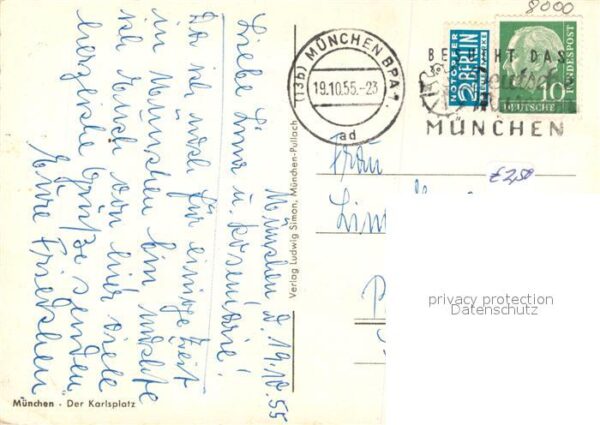 8000
(13b) MÜNCHEN BPA 1
19.10.55.-23
ad
NOTOPFER
2 BERLIN
STEUERMARKE
10
DEUTSCHE
BUNDESPOST
BESUCHT DAS
Deutsche
MÜNCHEN
€ 2,50
München d. 19.10.55
Liebe Lina u. Rosemarie!
Da ich noch für einige Zeit
in München bin möchte
ich Euch von hier viele
herzliche Grüße senden
Eure Friedchen
Frau
Lin
Verlag Ludwig Simon, München-Pullach
privacy protection
Datenschutz
München - Der Karlsplatz